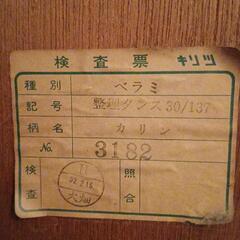 検査票 キリツ
種別 ベラミ
記号 整理タンス30/137
柄名 カリン
No. 3182
検査 照合
大畑